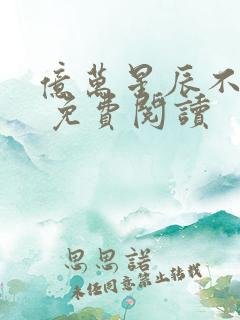 億萬星辰不
免費閱讀
思思諾
未經同意禁止轉載